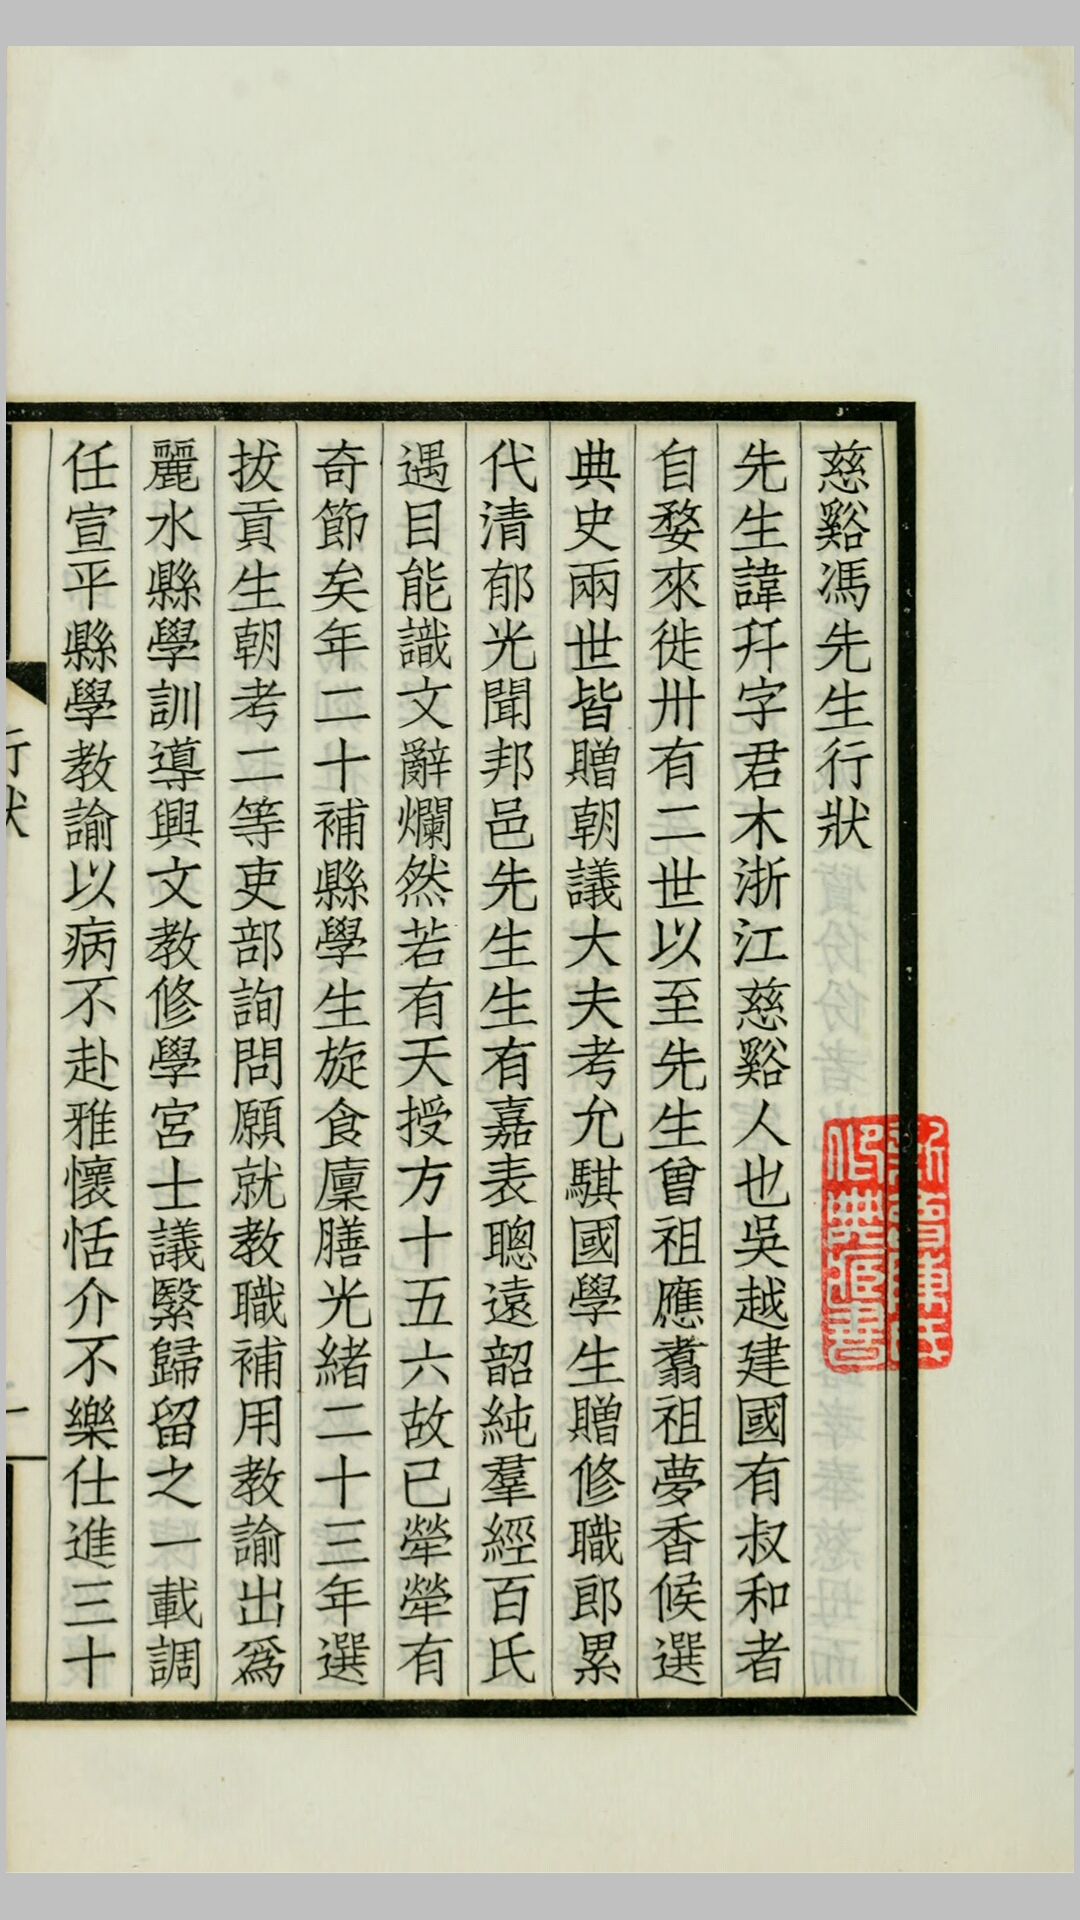 慈谿馮先生行狀
先生諱幵字君木浙江慈谿人也吳越建國有叔和者
自婺來徙卅有二世以至先生曾祖應翥祖夢香候選
典史兩世皆贈朝議大夫考允騏國學生贈修職郎累
代清郁光聞邦邑先生生有嘉表聰遠韶純羣經百氏
遇目能識文辭爛然若有天授方十五六故已犖犖有
奇節矣年二十補縣學生旋食廩膳光緒二十三年選
拔貢生朝考二等吏部詢問願就教職補用教諭出爲
麗水縣學訓導興文教修學宮士議繄歸留之一載調
任宣平縣學教諭以病不赴雅懷恬介不樂仕進三十
行狀
一